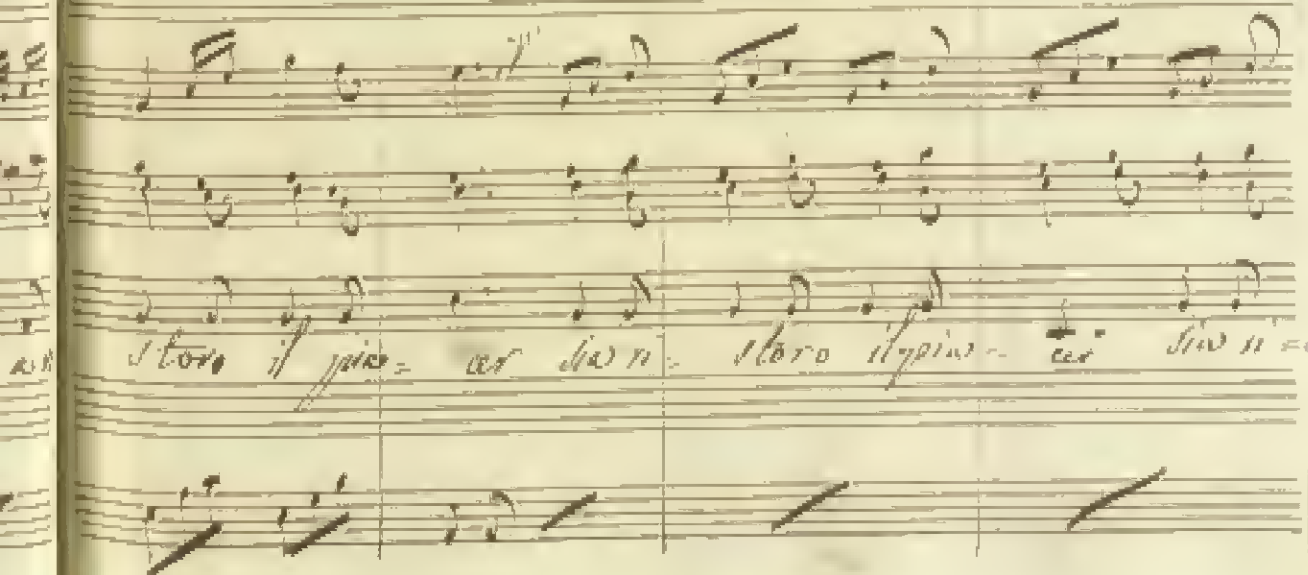 storo il pia= cer Sia ri= storo il pia= cer Sia ri=